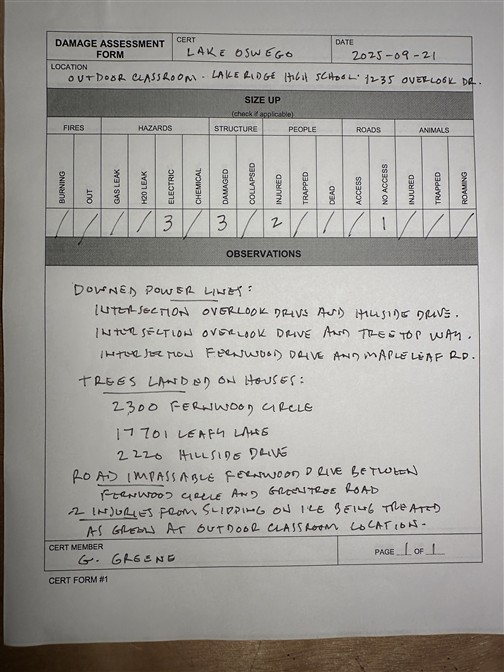 DAMAGE ASSESSMENT FORM
CERT
LAKE OSWEGO
DATE
2025-09-21
LOCATION
OUTDOOR CLASSROOM - LAKERIDGE HIGH SCHOOL: 1235 OVERLOOK DR.
SIZE UP
(check if applicable)
FIRES HAZARDS STRUCTURE PEOPLE ROADS ANIMALS
BURNING OUT GAS LEAK H20 LEAK ELECTRIC CHEMICAL DAMAGED COLLAPSED INJURED TRAPPED DEAD ACCESS NO ACCESS INJURED TRAPPED ROAMING
/ / / / 3 / 3 / 2 / / / 1 / / /
OBSERVATIONS
DOWNED POWER LINES:
INTERSECTION OVERLOOK DRIVE AND HILLSIDE DRIVE.
INTERSECTION OVERLOOK DRIVE AND TREETOP WAY.
INTERSECTION FERNWOOD DRIVE AND MAPLELEAF RD.
TREES LANDED ON HOUSES:
2300 FERNWOOD CIRCLE
17701 LEAFY LANE
2220 HILLSIDE DRIVE
ROAD IMPASSABLE FERNWOOD DRIVE BETWEEN
FERNWOOD CIRCLE AND GREENTREE ROAD
2 INJURIES FROM SLIPPING ON ICE BEING TREATED
AS GREEN AT OUTDOOR CLASSROOM LOCATION.
CERT MEMBER
G. GREENE
PAGE 1 OF 1
CERT FORM #1